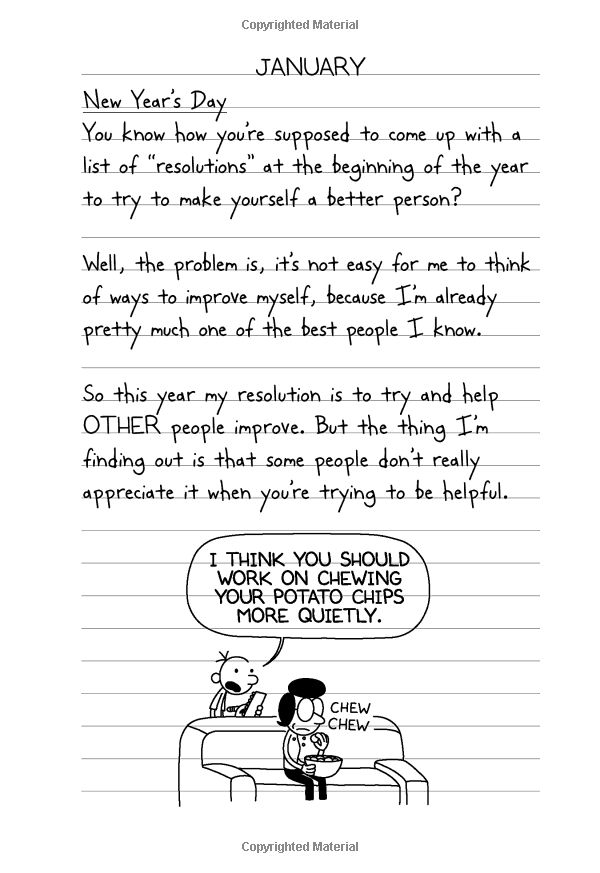 Copyrighted Material
JANUARY
New Year's Day
You know how you're supposed to come up with a
list of "resolutions" at the beginning of the year
to try to make yourself a better person?
Well, the problem is, it's not easy for me to think
of ways to improve myself, because I'm already
pretty much one of the best people I know.
So this year my resolution is to try and help
OTHER people improve. But the thing I'm
finding out is that some people don't really
appreciate it when you're trying to be helpful.
I THINK YOU SHOULD
WORK ON CHEWING
YOUR POTATO CHIPS
MORE QUIETLY.
CHEW
CHEW
Copyrighted Material